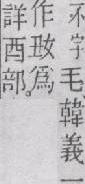 不字毛韓義一
作㺵爲
詳酉部。